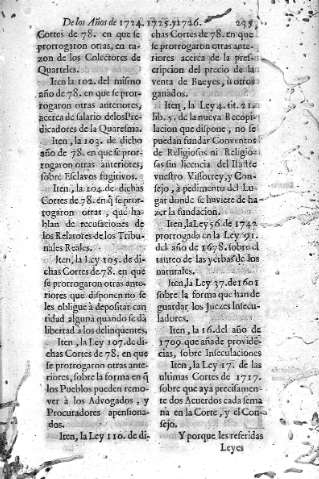 De los Años de 1724. 1725. y 1726. 295.
Cortes de 78. en que se
prorrogaron otras, en ra-
zon de los Colectores de
Quarteles.
Iten la 102. del mismo
año de 78. en que se pror-
rogaron otras anteriores,
acerca de salario de los Pre-
dicadores de la Quaresma.
Iten, la 103. de dicho
año de 78. en que se pror-
rogaron otras anteriores,
sobre Esclavos fugitivos.
Iten, la 104. de dichas
Cortes de 78. en q̃ se pror-
rogaron otras, que ha-
blan de recusaciones de
los Relatores de los Tribu-
nales Reales.
Iten, la Ley 105. de di-
chas Cortes de 78. en que
se prorrogaron otras ante-
riores que disponen no se
les obligue à depositar can-
tidad alguna quando se dà
libertad à los delinquentes.
Iten, la Ley 107. de di-
chas Cortes de 78. en que
se prorrogaron otras ante-
riores, sobre la forma en q̃
los Pueblos pueden remo-
ver à los Advogados, y
Procuradores apensiona-
dos.
Iten, la Ley 110. de di-
chas Cortes de 78. en que
se prorrogaron otras ante-
riores acerca de la pres-
cripcion del precio de la
venta de Bueyes, ù otros
ganados.
Iten, la Ley 4. tit. 21.
lib. 5. de la nueva Recopi-
lacion que dispone, no se
puedan fundar Conventos
de Religiosos ni Religio-
sas sin licencia del Ilustre
vuestro Visorrey, y Con-
sejo, à pedimento del Lu-
gar donde se huviere de ha-
zer la fundacion.
Iten, la Ley 56. de 1742
prorrogado en la Ley 91.
del año de 1678. sobre el
tauteo de las yerbas de los
naturales.
Iten, la Ley 37. de 1601
sobre la forma que han de
guardar los Juezes Insecu-
ladores.
Iten, la 16. del año de
1709. que añade providẽ-
cias, sobre Inseculaciones
Iten, la Ley 17. de las
ultimas Cortes de 1717.
sobre que aya precisamen-
te dos Acuerdos cada sema
na en la Corte, y el Con-
sejo.
Y porque les referidas
Leyes